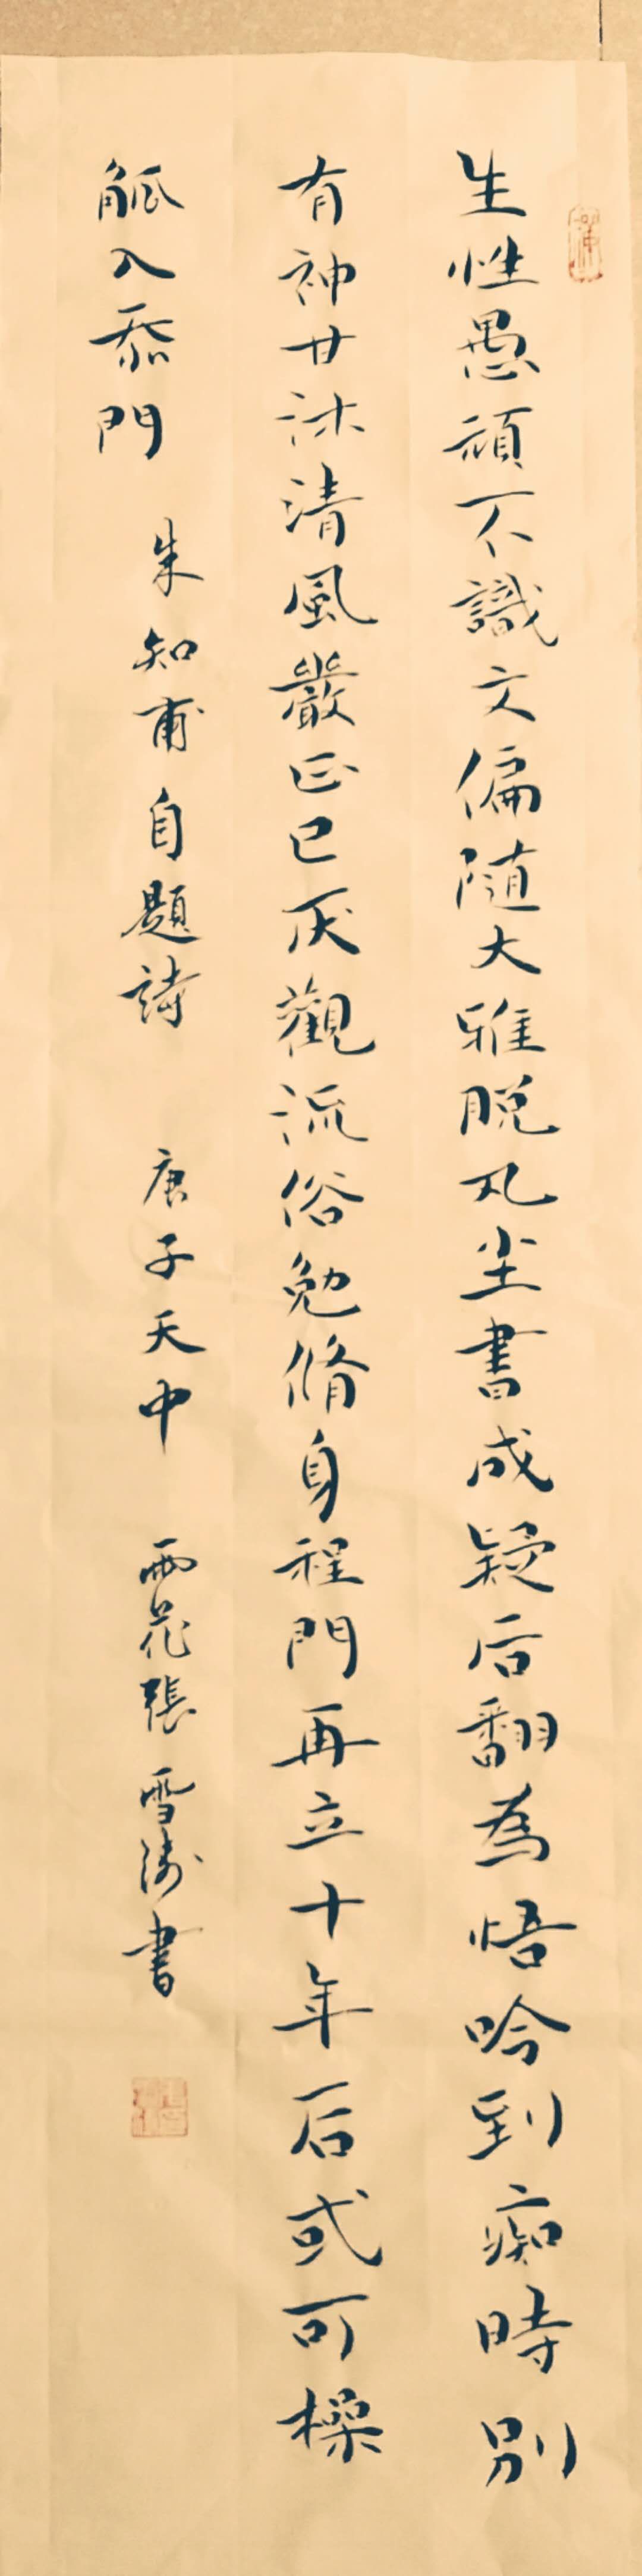 生性愚頑不識文偏随大雅脱凡尘書成疑后翻為悟吟到痴時別
有神甘沐清風嚴正己厌觀流俗勉脩身程門再立十年后或可操
觚入忝門
朱知甫自題詩
庚子天中
雨花張雪濤書